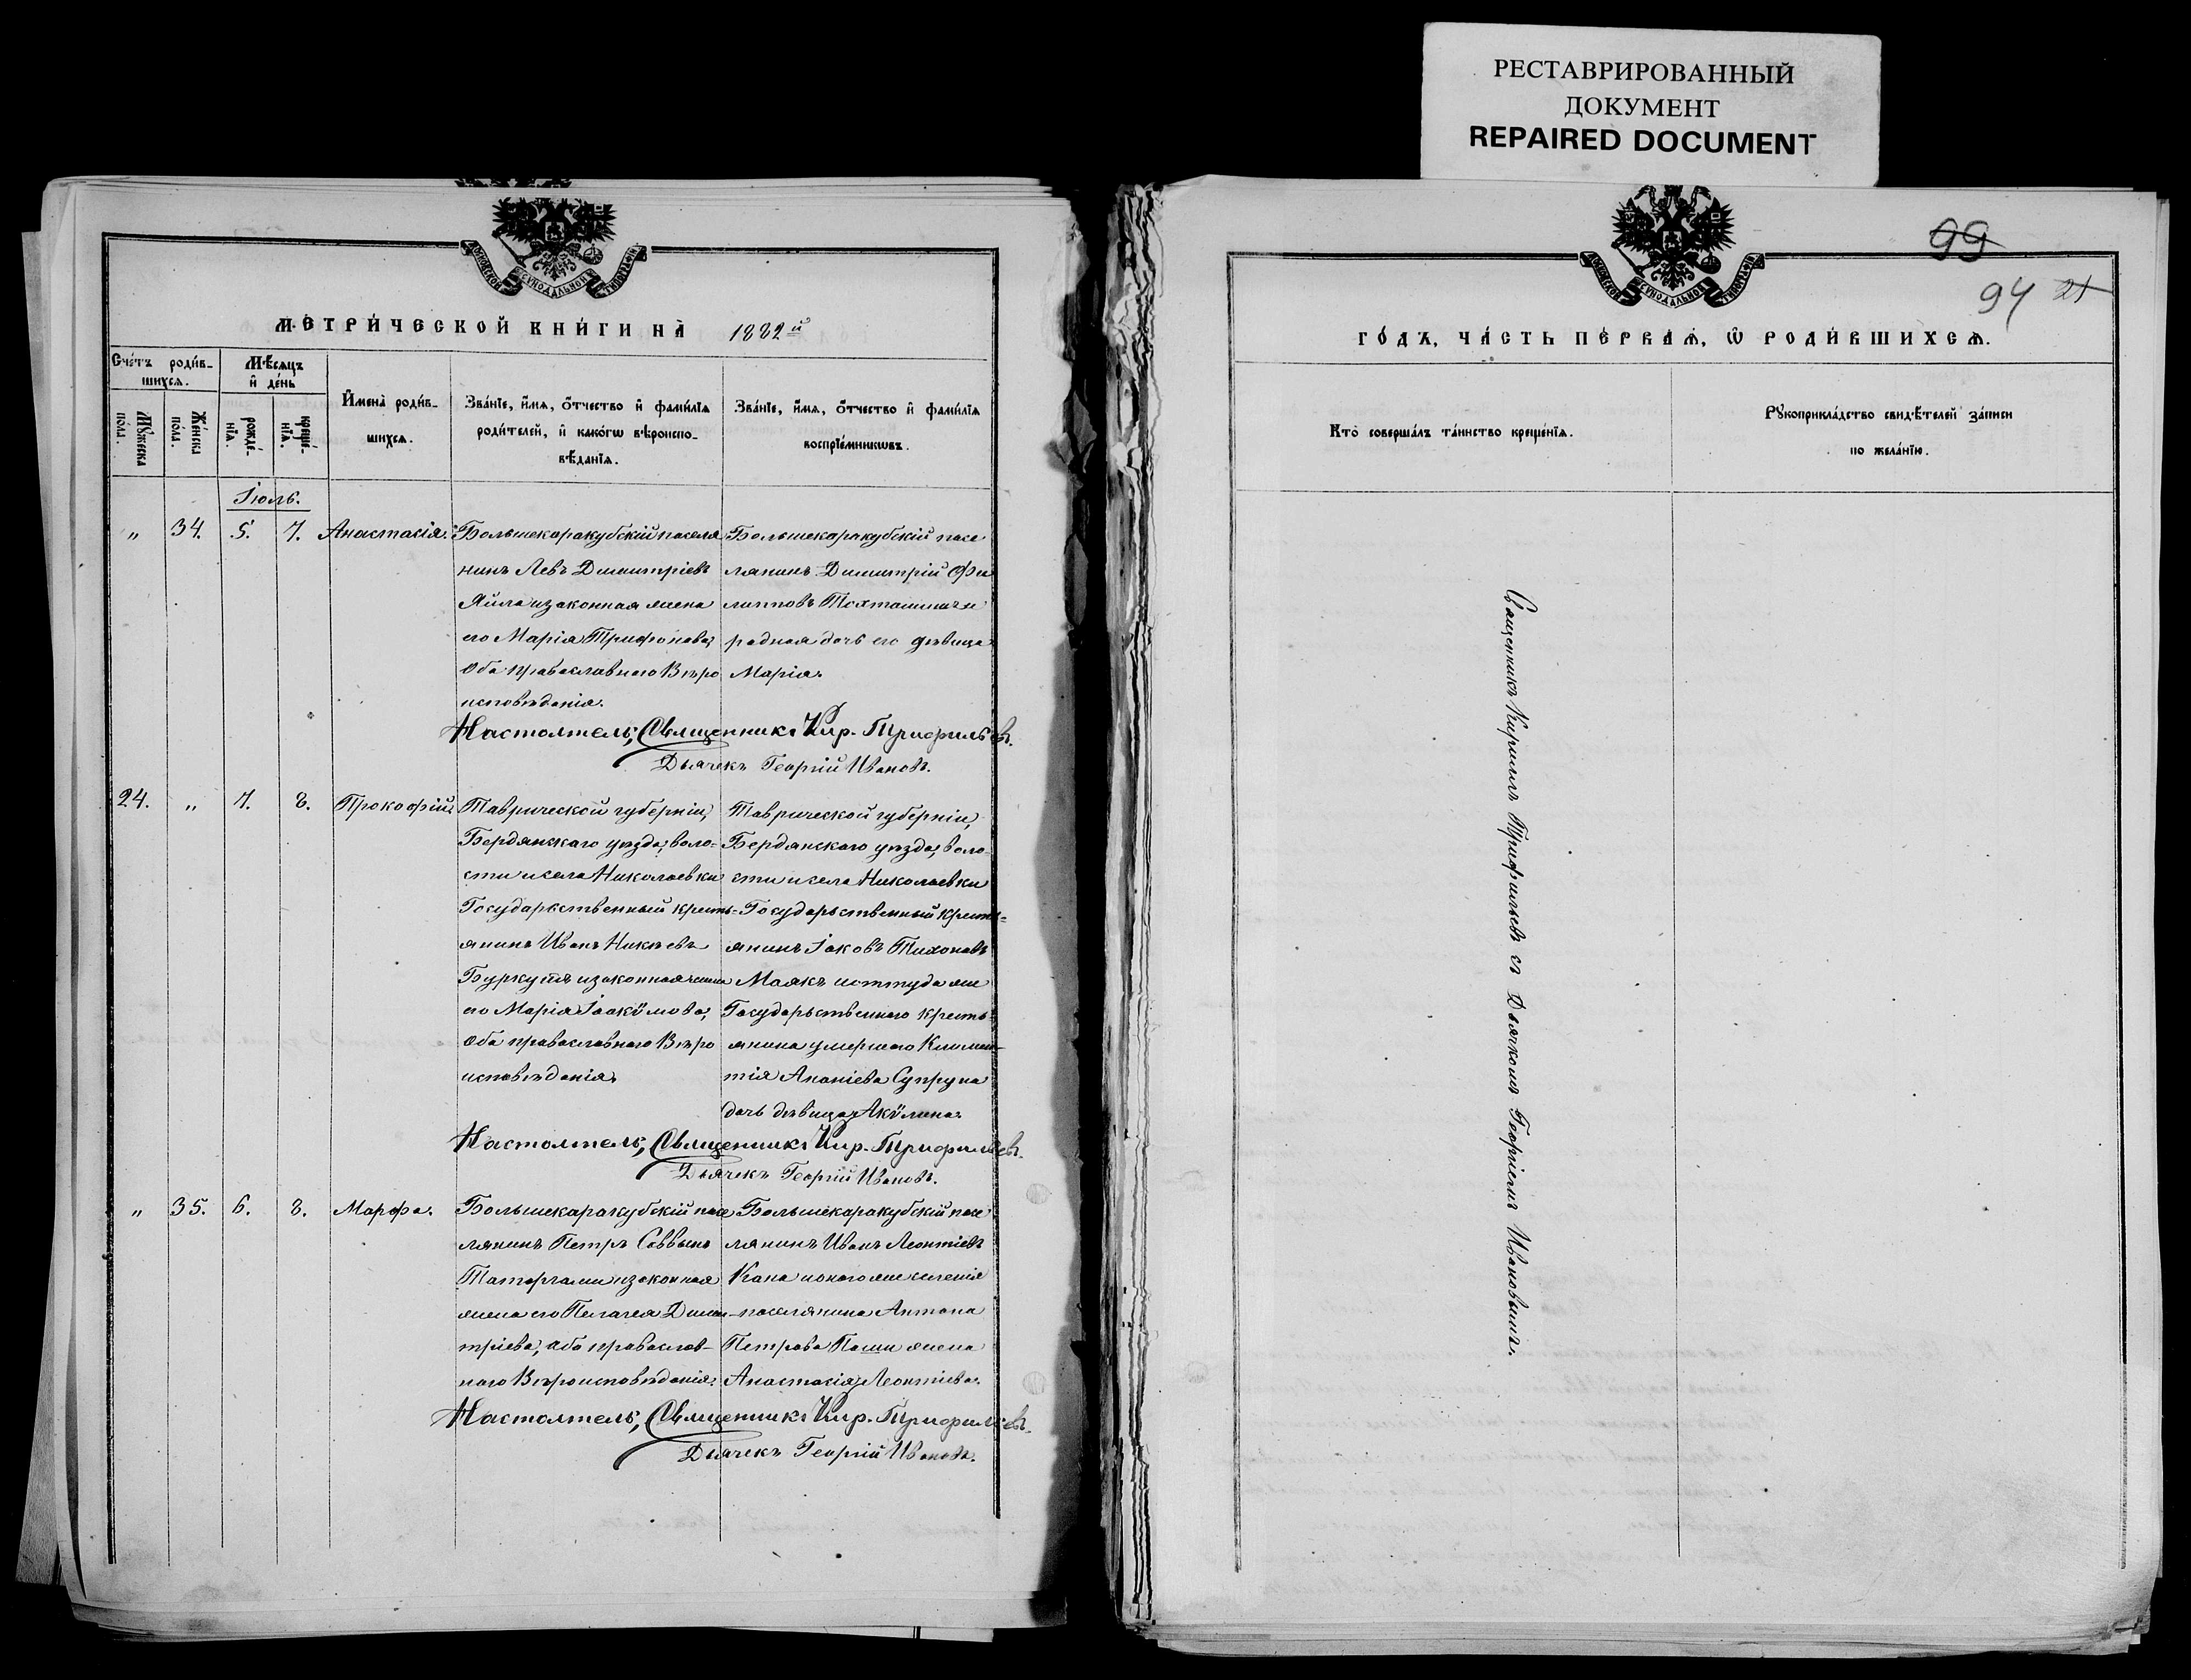 РЕСТАВРИРОВАННЫЙ
ДОКУМЕНТ
REPAIRED DOCUMENT
МОСКОВСКОЙ СѴНОДАЛЬНОЙ ТИПОГРАФІИ
МЕТРИ́ЧЕСКОЙ КНИ́ГИ НА̀ 1882й
Сче́тъ роди́в-
шихся.
Мѣ́сяцъ
и҆ де́нь
Мꙋ́жеска
по́ла.
Же́нска
по́ла.
рожде́-
нїѧ.
креще́-
нїѧ.
И҆мена̀ роди́в-
шихсѧ.
Зва́нїе, и҆́мѧ, ѻ҆́тчество и҆ фами́лїѧ
роди́телей, и҆ како́гѡ вѣроиспо-
вѣ́данїѧ.
Зва́нїе, и҆́мѧ, ѻ҆́тчество и҆ фами́лїѧ
воспрїе́мникѡвъ.
Іюль.
" 34. 5. 7. Анастасія.
Большекаракубскій поселя
нинъ Левъ Димитріевъ
Яйла и законная жена
его Марія Трифонова,
Оба православнаго Вѣро
исповѣданія.
Большекаракубскій посе
лянинъ Димитрій Фи
липповъ и
родная дочь его дѣвица
Марія.
Настоятель, Священникъ Кир. Трифильевъ.
Дьячекъ Георгій Ивановъ.
24. " 7. 8. Прокофій.
Таврической губерніи,
Бердянскаго уѣзда, воло-
сти и села Николаевки
Государственный кресть-
янинъ Иванъ
и законная жена
его Марія Іоакумова,
Оба православнаго Вѣро
исповѣданія.
Таврической губерніи,
Бердянскаго уѣзда, воло-
сти и села Николаевки
Государственный кресть-
янинъ Іаковъ Тихоновъ
Маякъ и оттуда же
Государственнаго кресть-
янина умершаго Климен-
тія Ананіева Супруна
дочь дѣвица Акулина.
Настоятель, Священникъ Кир. Трифильевъ.
Дьячекъ Георгій Ивановъ.
" 35. 6. 8. Марфа.
Большекаракубскій посе
лянинъ Петръ Саввинъ
и законная
жена его Пелагея Дими-
тріева, оба православ-
наго Вѣроисповѣданія.
Большекаракубскій посе
лянинъ Иванъ Леонтіевъ
Кана и онаго же селенія
поселянина Антона
Петрова Паши жена
Анастасія Леонтіева.
Настоятель, Священникъ Кир. Трифильевъ.
Дьячекъ Георгій Ивановъ.
99
94 21
МОСКОВСКОЙ СѴНОДАЛЬНОЙ ТИПОГРАФІИ
ГО́ДЪ, ЧА́СТЬ ПЕ́РВАѦ, Ѡ҆ РОДИ́ВШИХСѦ.
Кто̀ соверша́лъ та́инство креще́нїѧ.
Рꙋкоприкла́дство свидѣ́телей за́писи
по жела́нїю.
Священникъ Кириллъ Трифильевъ съ Дьячкомъ Георгіемъ Ивановымъ.